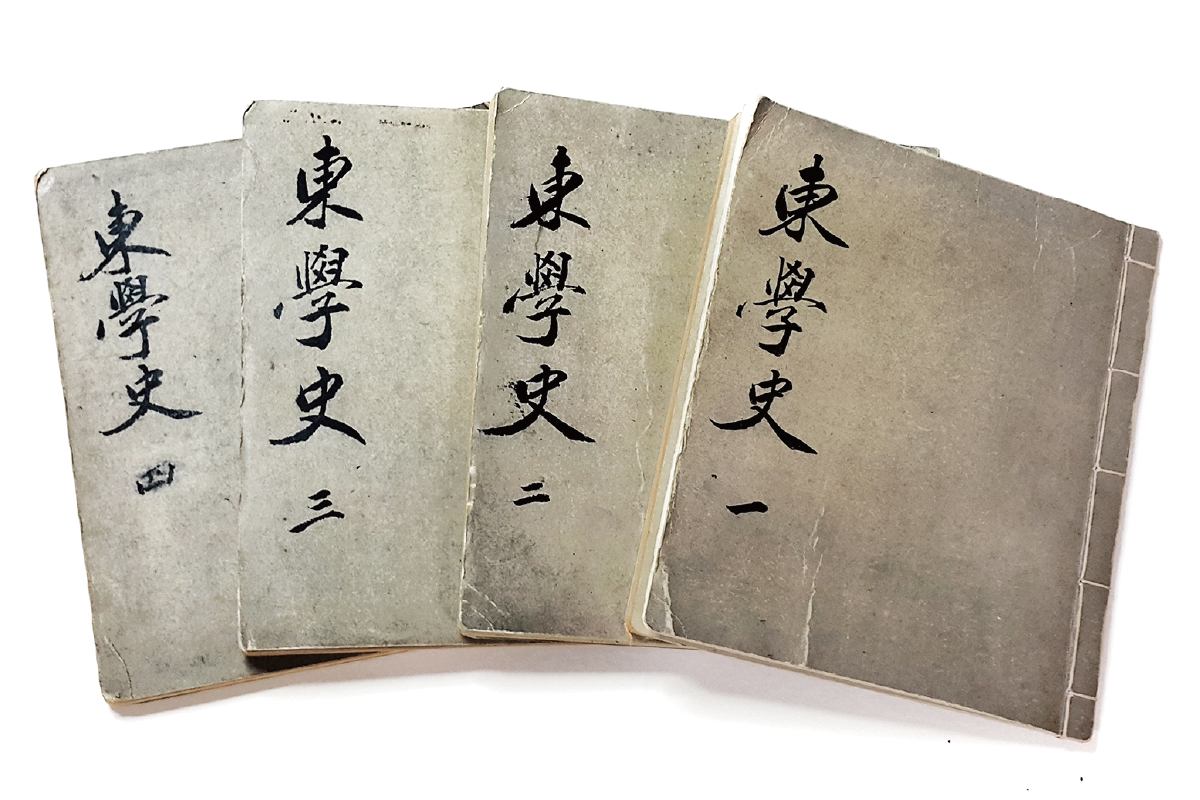 東學史 一
東學史 二
東學史 三
東學史 四